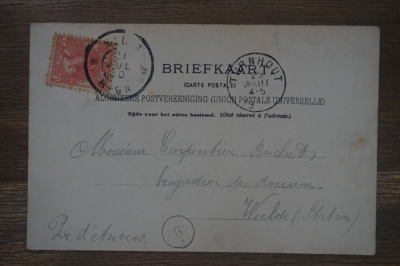 BRIEFKAART
(CARTE POSTALE)
ALGEMEENE POSTVEREENIGING (UNION POSTALE UNIVERSELLE)
Zijde voor het adres bestemd. (Côté réservé à l'adresse.)
TURNHOUT
JUIL
4-5
Monsieur Carpentier-
brigadier des douanes
Weelde (Station)
Pr. d'Anvers